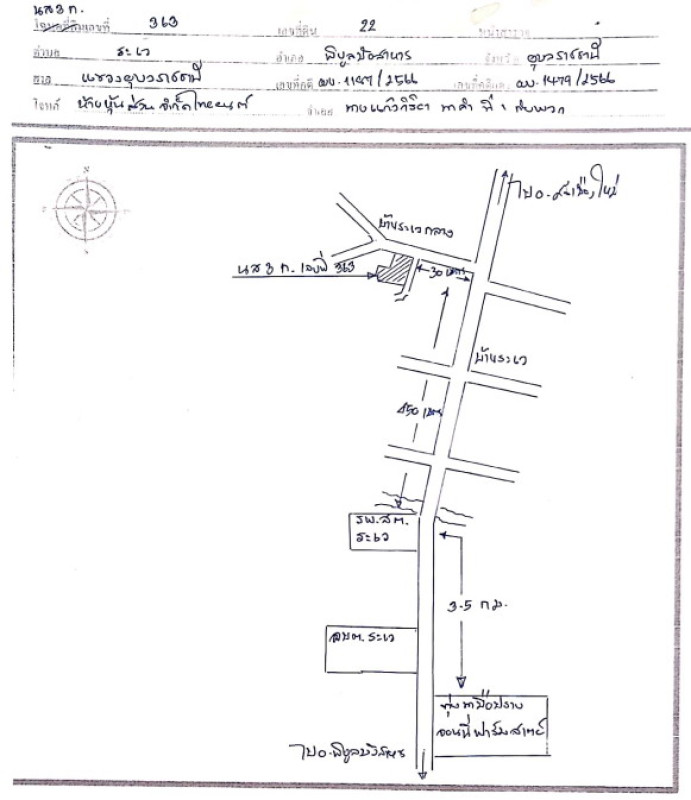 นส 3 ก.
โฉนดที่ดินเลขที่ 363 เลขที่ดิน 22 หน้าสำรวจ
ตำบล ระเว อำเภอ พิบูลมังสาหาร จังหวัด อุบลราชธานี
ศาล แพ่งอุบลราชธานี เลขที่คดี ผบ. 1147/2566 เลขที่คดีแดง ผบ. 1479/2566
โจทก์ ห้างหุ้นส่วนจำกัด ไทยยนต์ จำเลย ที่ 1 กับพวก
N
ไป อ.ศรีเมืองใหม่
บ้านระเวกลาง
นส 3 ก. เลขที่ 363
30 เมตร
บ้านระเว
450 เมตร
รพ.สต.
ระเว
3.5 กม.
อบต. ระเว
ไป อ.พิบูลมังสาหาร